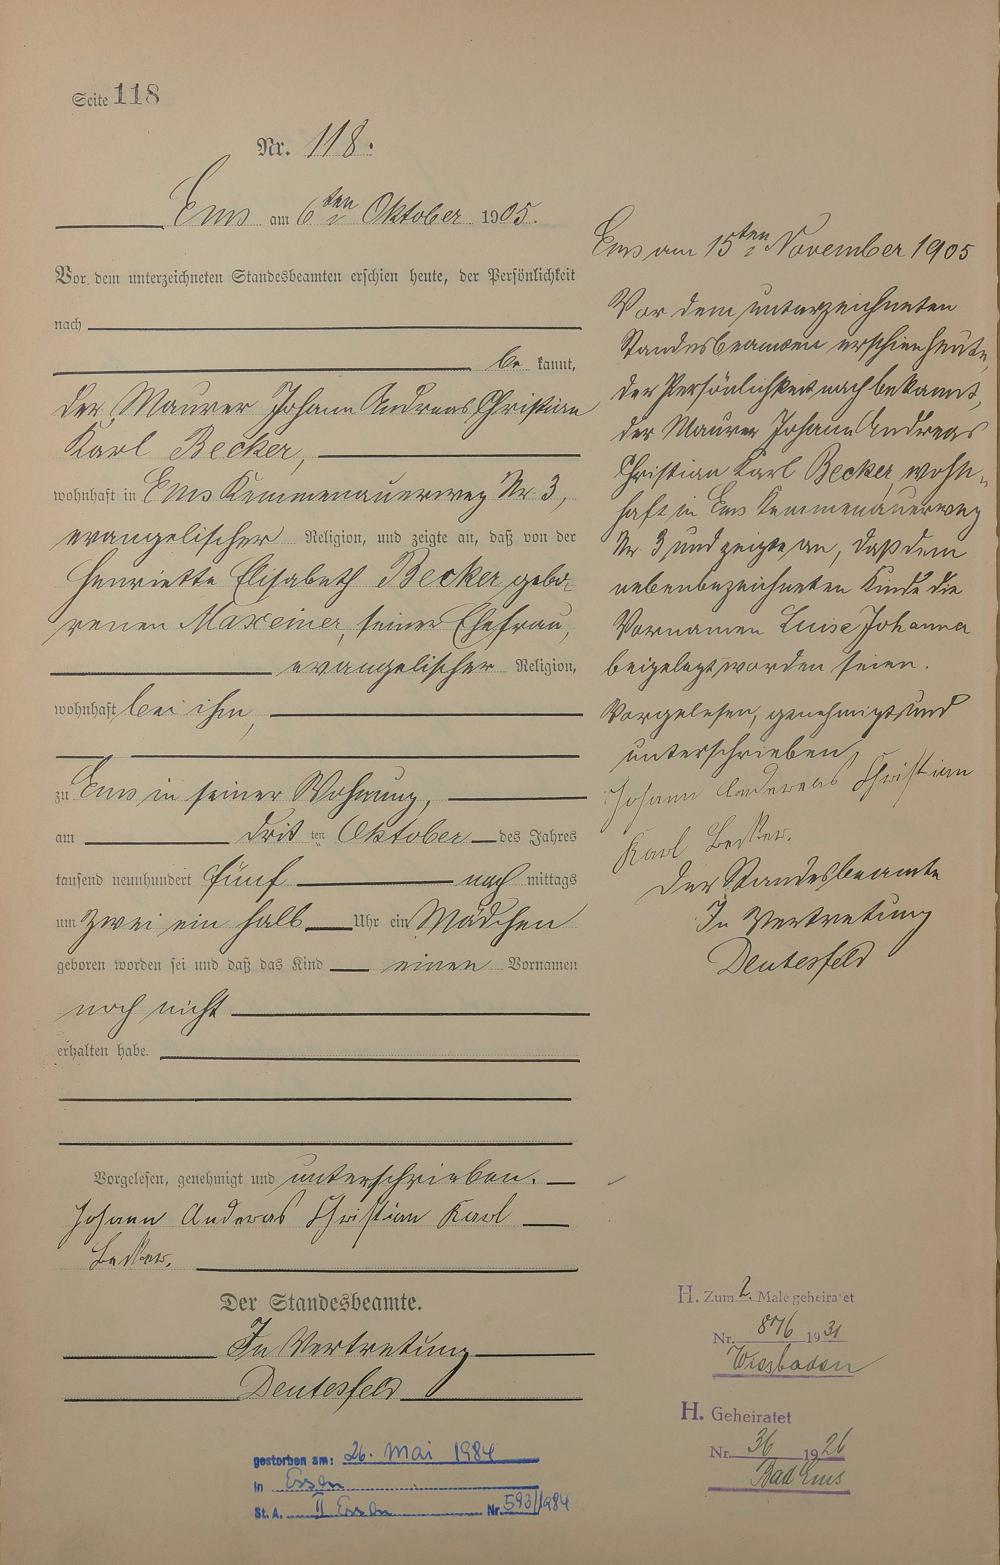 Seite 118
Nr. 118.
Ems am 6ten Oktober 1905.
Vor dem unterzeichneten Standesbeamten erschien heute, der Persönlichkeit
nach
be kannt,
der Maurer Johann Andreas Christian
Karl Becker,
wohnhaft in Ems Kemmenauerweg Nr 3,
evangelischer Religion, und zeigte an, daß von der
Henriette Elisabeth Becker gebo-
renen Maxeiner, seiner Ehefrau,
evangelischer Religion,
wohnhaft bei ihm,
zu Ems in seiner Wohnung,
am drit ten Oktober des Jahres
tausend neunhundert fünf nach mittags
um zwei ein halb Uhr ein Mädchen
geboren worden sei und daß das Kind einen Vornamen
noch nicht
erhalten habe.
Vorgelesen, genehmigt und unterschrieben.
Johann Anderas Christian Karl
Becker.
Der Standesbeamte.
In Vertretung
Deutesfeld
gestorben am: 26. Mai 1984
in Essen
St. A. II Essen Nr. 593/1984
Ems am 15ten November 1905
Vor dem unterzeichneten
Standesbeamten erschien heute,
der Persönlichkeit nach bekannt,
der Maurer Johann Andreas
Christian Karl Becker, wohn-
haft in Ems Kemmenauerweg
Nr 3 und zeigte an, daß dem
nebenbezeichneten Kinde die
Vornamen Luise Johanna
beigelegt worden seien.
Vorgelesen, genehmigt und
unterschrieben
Johann Andereas Christian
Karl Becker.
Der Standesbeamte
In Vertretung
Deutesfeld
H. Zum 2. Male geheiratet
Nr. 876 1931
Wiesbaden
H. Geheiratet
Nr. 36 1926
Bad Ems